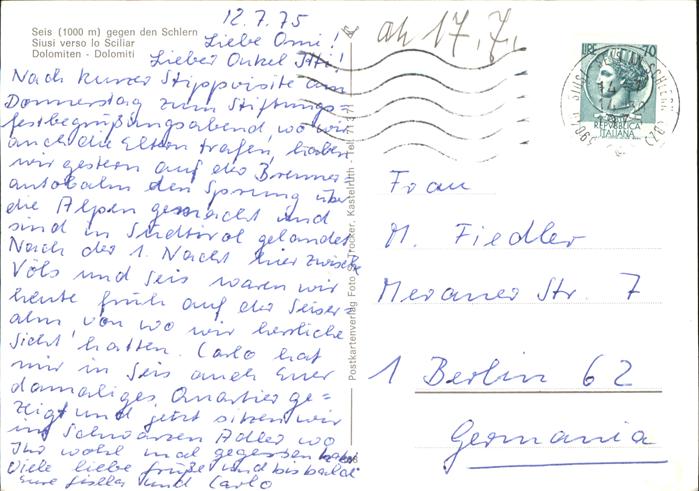 Seis (1000 m) gegen den Schlern
Siusi verso lo Sciliar
Dolomiten - Dolomiti
12.7.75
Liebe Omi!
Lieber Onkel
Nach kurzer Stippvisite am
Donnerstag zum Stiftungs=
festbegrüßungsabend, wo wir
auch die Eltern trafen, haben
wir gestern auf der Brenner
autobahn den Sprung über
die Alpen gemacht und
sind in Südtirol gelandet.
Nach der 1. Nacht hier zwischen
Völs und Seis waren wir
heute früh auf der Seiser=
alm, von wo wir herrliche
Sicht hatten. Carlo hat
mir in Seis auch Euer
damaliges Quartier ge=
zeigt und jetzt sitzen wir
im Schwarzen Adler wo
Ihr wohl mal gegessen habt
Viele liebe Grüße und bis bald
Eure und Carlo
Postkartenverlag Foto Trocker, Kastelruth - Tel.
ab 17.7.
LIRE 70
REPVBBLICA
ITALIANA
Frau
M. Fiedler
Meraner Str. 7
1 Berlin 62
Germania